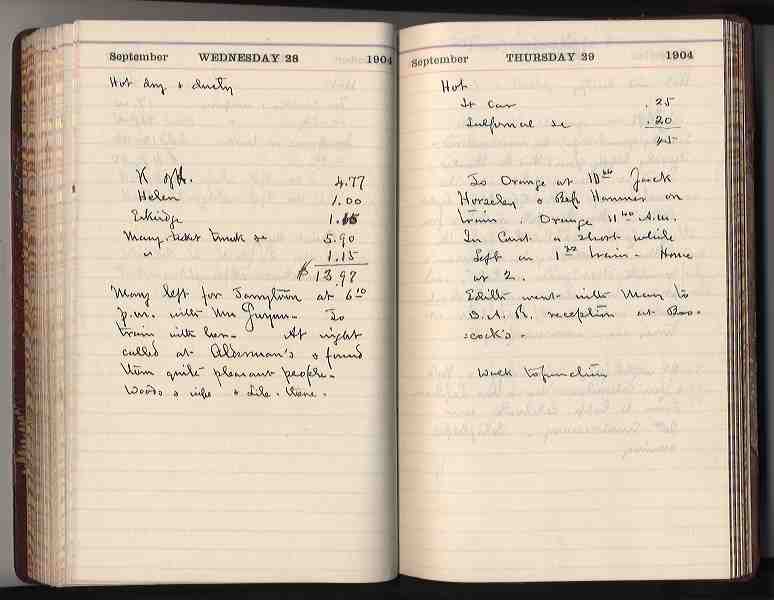 September WEDNESDAY 28 1904
Hot dry & dusty
K of A. 4.77
Helen 1.00
Eskridge
Mary ticket trunk &c 5.90
" 1.15
$ 13.97
Mary left for Tarrytown at 6 10
p.m. with Mrs To
train with her. At night
called at Alderman's & found
them quite pleasant people.
Woods & wife & there.
September THURSDAY 29 1904
Hot
St car .25
&c .20
45
To Orange at 10 Jack
Horseley & Hammer on
train. Orange 11 A.M.
In Court a short while
Left on 1 train - Home
at 2.
Edith went with Mary to
D.A.R. reception at
cock's.
Walk to function